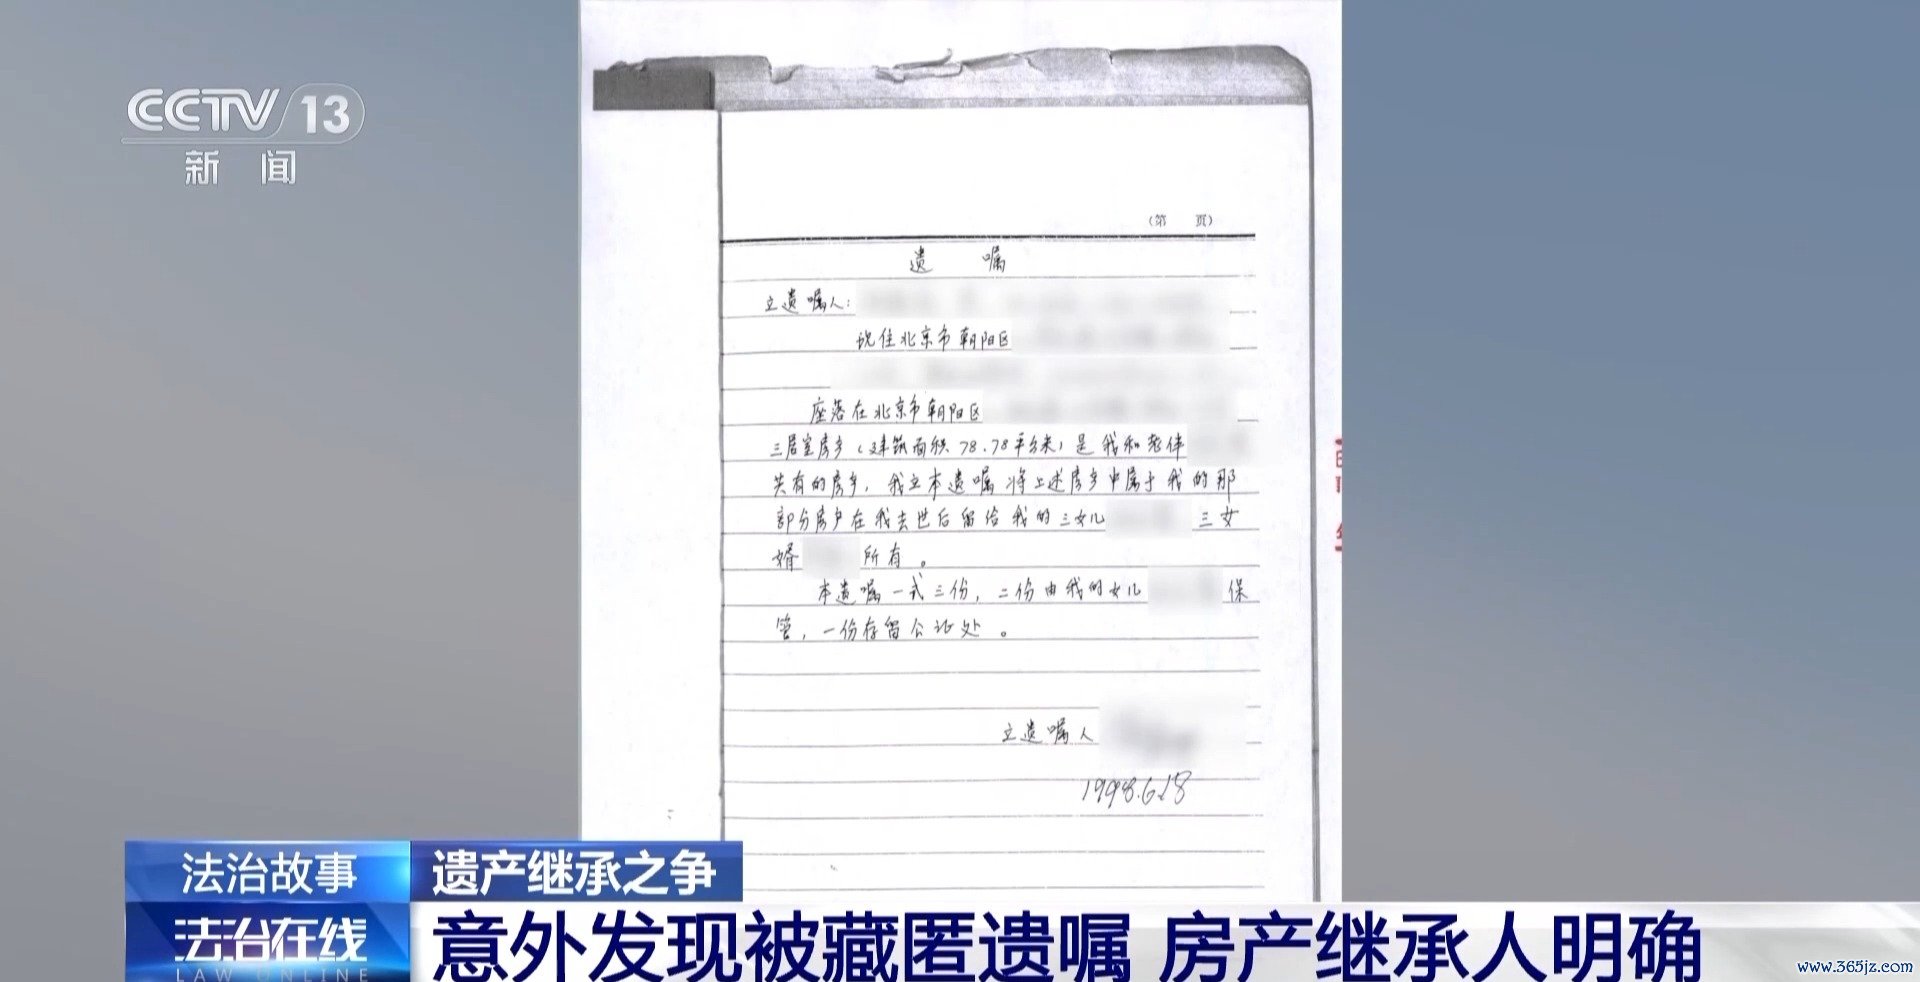 CCTV 13
新闻
（第 页）
遗 嘱
立遗嘱人：
现住北京市朝阳区
座落在北京市朝阳区
三居室房产（建筑面积78.78平方米）是我和老伴
共有的房产，我立本遗嘱将上述房产中属于我的那
部分房产在我去世后留给我的三女儿 三女
婿 所有。
本遗嘱一式三份，二份由我的女儿 保
管，一份存留公证处。
立遗嘱人
1998.6.18
法治故事
遗产继承之争
法治在线
LAW ONLINE
意外发现被藏匿遗嘱 房产继承人明确
www.365jz.com